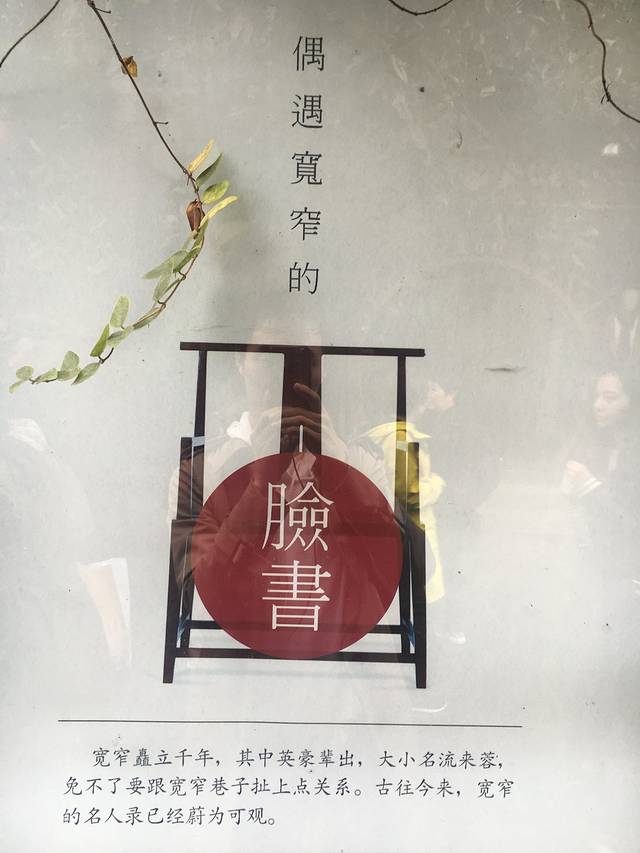 偶遇寬窄的
臉書
宽窄矗立千年，其中英豪辈出，大小名流来蓉，
免不了要跟宽窄巷子扯上点关系。古往今来，宽窄
的名人录已经蔚为可观。